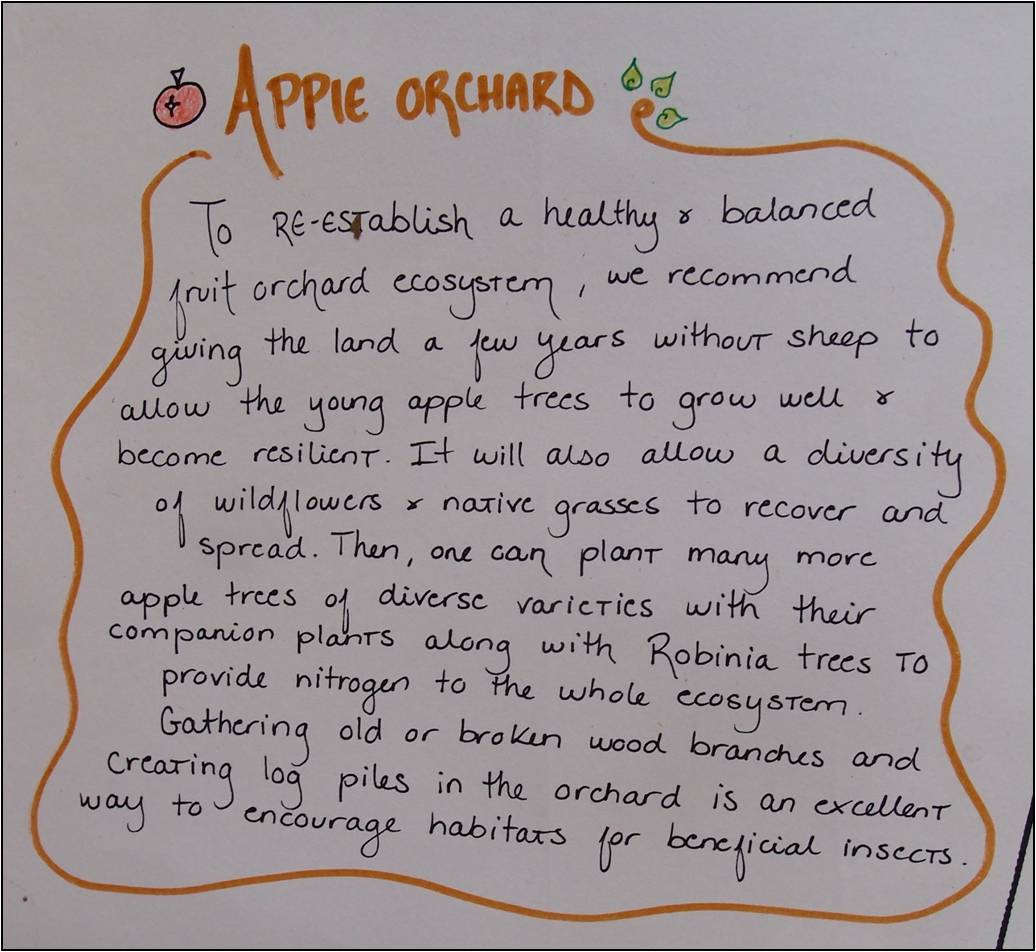 APPLE ORCHARD
To RE-ESTablish a healthy & balanced
fruit orchard ecosystem, we recommend
giving the land a few years without sheep to
allow the young apple trees to grow well &
become resilient. It will also allow a diversity
of wildflowers & native grasses to recover and
spread. Then, one can plant many more
apple trees of diverse varieties with their
companion plants along with Robinia trees to
provide nitrogen to the whole ecosystem.
Gathering old or broken wood branches and
creating log piles in the orchard is an excellent
way to encourage habitats for beneficial insects.